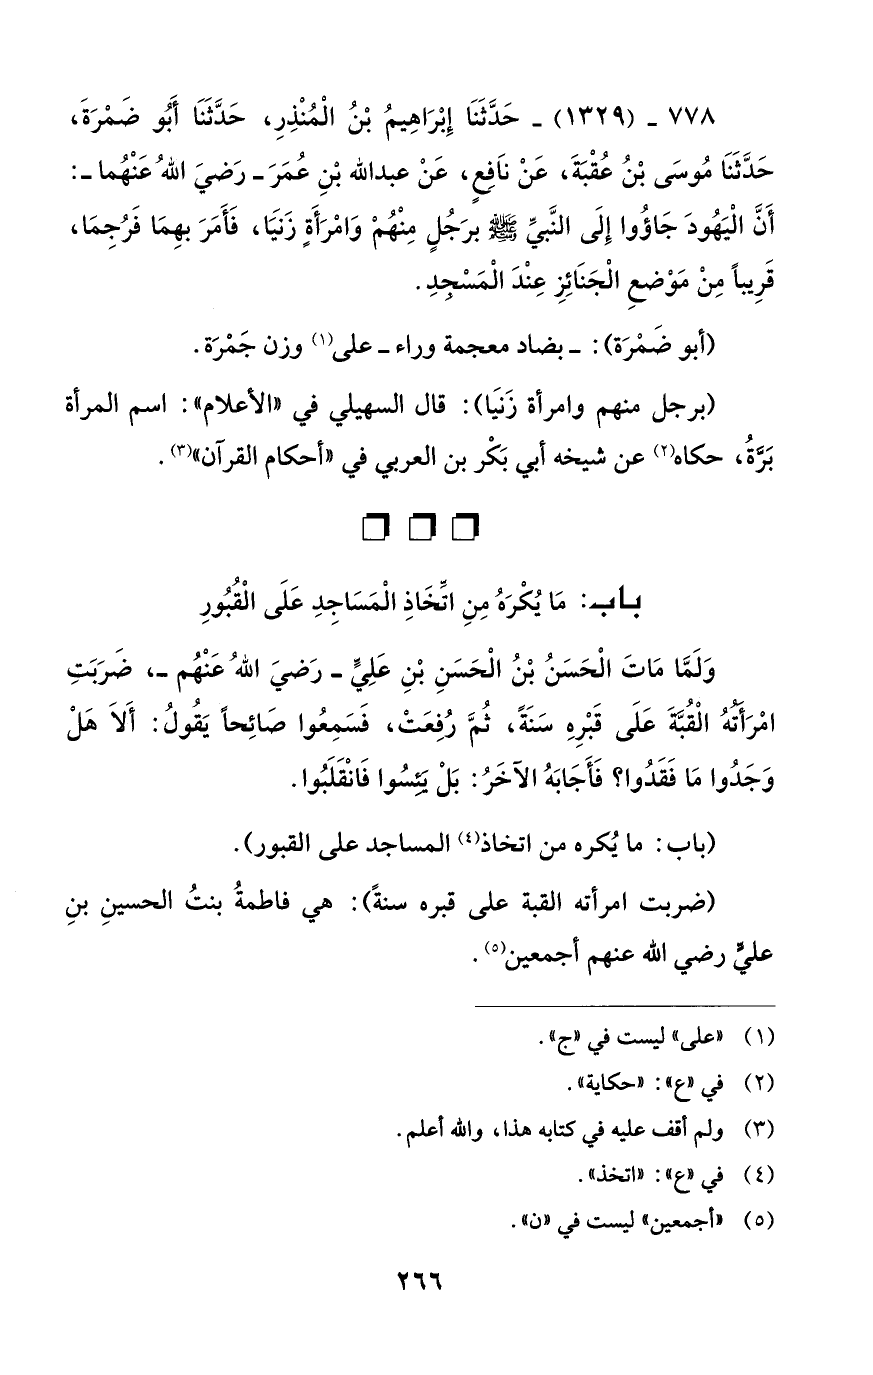 ٧٧٨ ـ (١٣٢٩) ـ حَدَّثَنَا إِبْرَاهِيمُ بْنُ الْمُنْذِرِ، حَدَّثَنَا أَبُو ضَمْرَةَ،
حَدَّثَنَا مُوسَى بْنُ عُقْبَةَ، عَنْ نَافِعٍ، عَنْ عبدالله بْنِ عُمَرَ ـ رَضيَ اللهُ عَنْهُما ـ:
أَنَّ الْيَهُودَ جَاؤُوا إِلَى النَّبيِّ ﷺ برَجُلٍ مِنْهُمْ وَامْرَأَةٍ زَنَيَا، فَأَمَرَ بهِمَا فَرُجِمَا،
قَرِيباً مِنْ مَوْضعِ الْجَنَائِزِ عِنْدَ الْمَسْجِدِ.
(أبو ضَمْرَة): ـ بضاد معجمة وراء ـ على(١) وزن جَمْرَة.
(برجل منهم وامرأة زَنَيَا): قال السهيلي في «الأعلام»: اسم المرأة
بَرَّةُ، حكاه(٢) عن شيخه أبي بَكْر بن العربي في «أحكام القرآن»(٣).
❒ ❒ ❒
باب: مَا يُكْرَهُ مِنِ اتِّخَاذِ الْمَسَاجِدِ عَلَى الْقُبُورِ
وَلَمَّا مَاتَ الْحَسَنُ بْنُ الْحَسَنِ بْنِ عَلِيٍّ ـ رَضيَ اللهُ عَنْهُم ـ، ضَرَبَتِ
امْرَأَتُهُ الْقُبَّةَ عَلَى قَبْرِهِ سَنَةً، ثُمَّ رُفِعَتْ، فَسَمِعُوا صَائِحاً يَقُولُ: أَلاَ هَلْ
وَجَدُوا مَا فَقَدُوا؟ فَأَجَابَهُ الآخَرُ: بَلْ يَئِسُوا فَانْقَلَبُوا.
(باب: ما يُكره من اتخاذ(٤) المساجد على القبور).
(ضربت امرأته القبة على قبره سنةً): هي فاطمةُ بنتُ الحسينِ بنِ
عليٍّ رضي الله عنهم أجمعين(٥).
(١) «على» ليست في «ج».
(٢) في «ع»: «حكاية».
(٣) ولم أقف عليه في كتابه هذا، والله أعلم.
(٤) في «ع»: «اتخذ».
(٥) «أجمعين» ليست في «ن».
٢٦٦